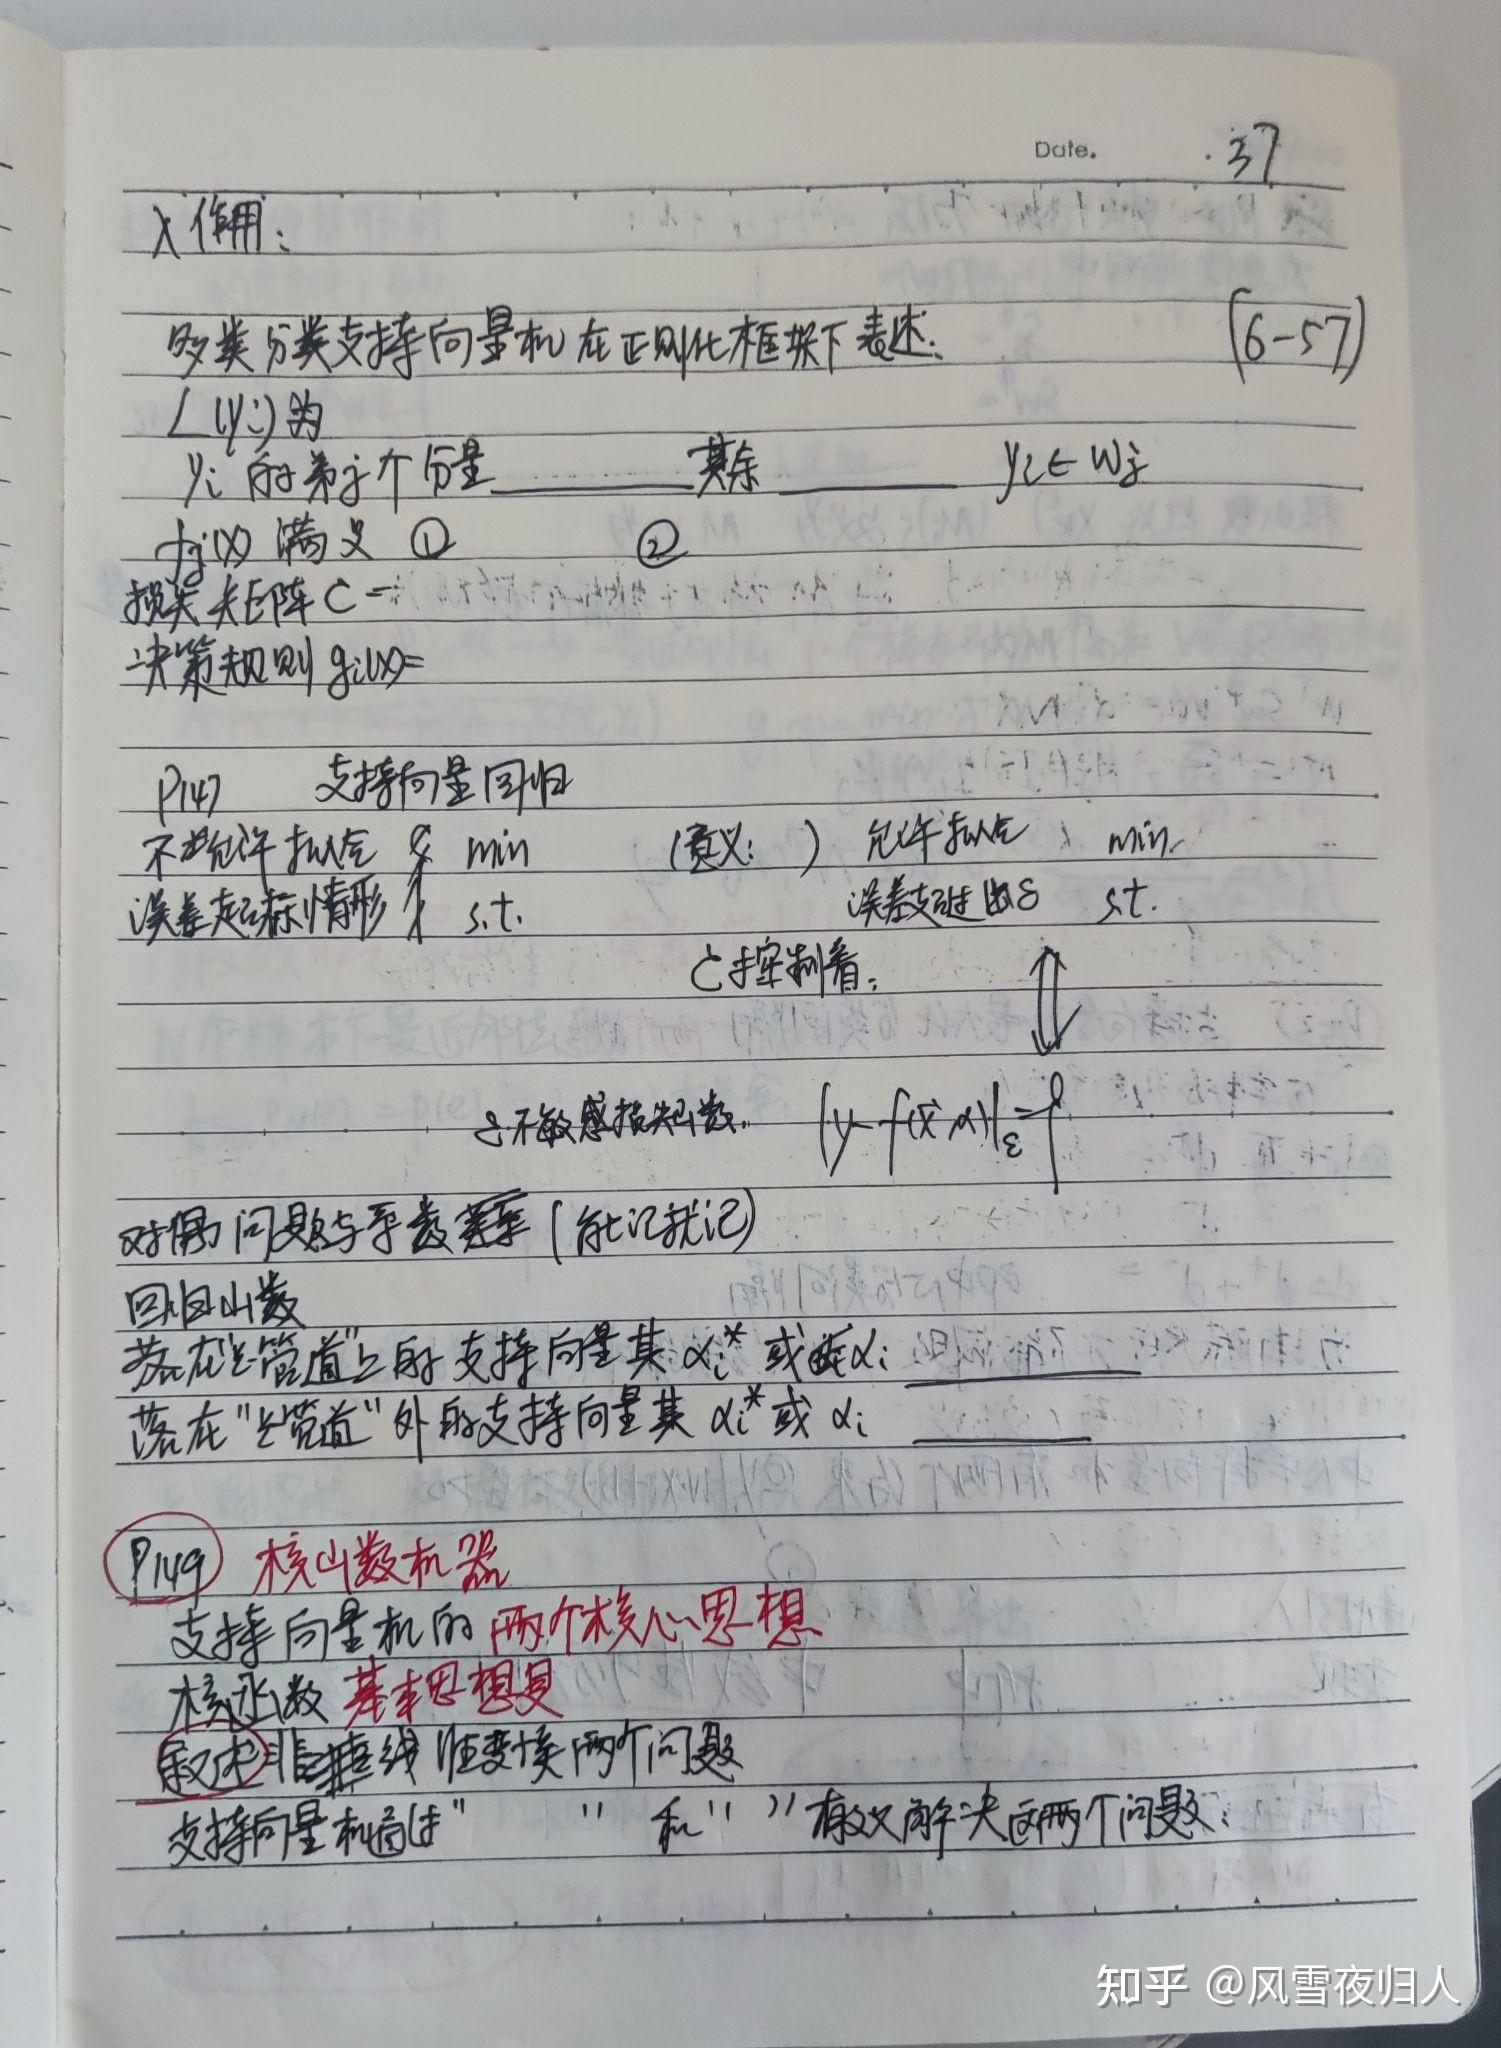 Date. 37
λ作用:
多类分类支持向量机在正则化框架下表述: (6-57)
L(yi)为
yi的第j个分量______其余______ yi∈wj
fj(x)满足 ① ②
损失矩阵C=
决策规则gi(x)=
P147 支持向量回归
不允许拟合 min (意义: ) 允许拟合 min
误差超标情形 s.t. 误差超出ε s.t.
C控制着:
ε不敏感损失函数. |y-f(x,α)|ε={
对偶问题与函数(能记就记)
回归函数
落在"ε管道"上的支持向量其αi*或αi______
落在"ε管道"外的支持向量其αi*或αi______
P149 核函数机器
支持向量机的两个核心思想
核函数基本思想是
叙述非线性变换两个问题
支持向量机通过" "和" "有效解决这两个问题.
知乎 @风雪夜归人